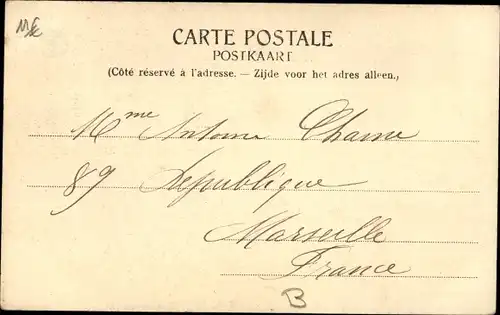 CARTE POSTALE
POSTKAART
(Côté réservé à l'adresse. — Zijde voor het adres alleen.)
Mme Antome Chame
89 République
Marseille
France
B